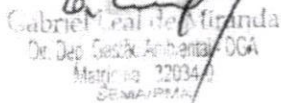 Gabriel Leal de Miranda
Dir. Dep. Gestão Ambiental - DGA
Matrícula 32034-0
SEMA/PMA